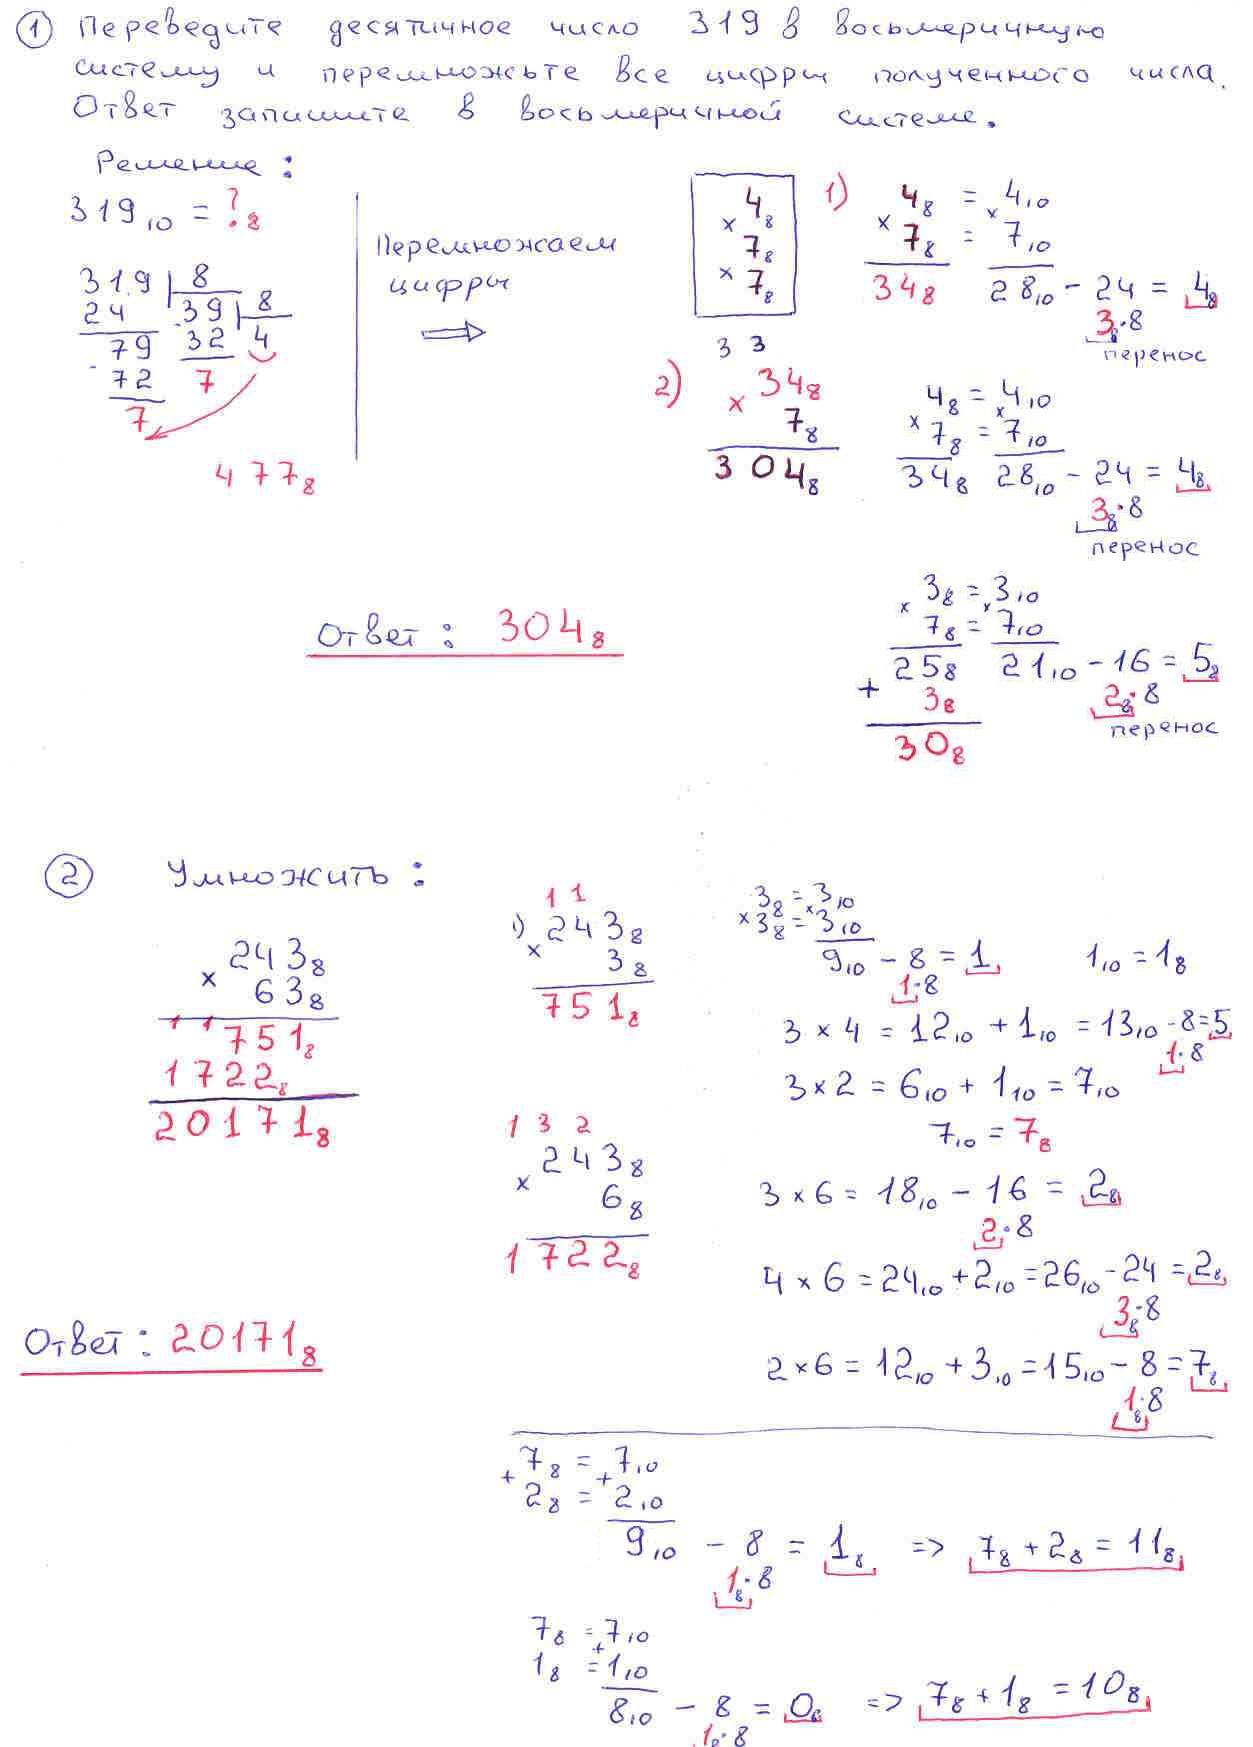 ① Переведите десятичное число 319 в восьмеричную
систему и перемножьте все цифры полученного числа.
Ответ запишите в восьмеричной системе.
Решение :
319₁₀ = ?₈
319 | 8
24 39 | 8
79 32 4
72 7
7
477₈
Перемножаем
цифры
⇒
4₈
× 7₈
× 7₈
1) 4₈ = 4₁₀
× 7₈ = × 7₁₀
34₈ 28₁₀ - 24 = 4₈
3₈·8
перенос
3 3
2) 34₈
× 7₈
304₈
4₈ = 4₁₀
× 7₈ = × 7₁₀
34₈ 28₁₀ - 24 = 4₈
3₈·8
перенос
× 3₈ = × 3₁₀
7₈ = 7₁₀
25₈ 21₁₀ - 16 = 5₈
+ 3₈ 2₈·8
перенос
30₈
Ответ : 304₈
② Умножить :
243₈
× 63₈
1 1 751₈
1722₈
20171₈
1 1
1) 243₈
× 3₈
751₈
3₈ = 3₁₀
× 3₈ = × 3₁₀
9₁₀ - 8 = 1 1₁₀ = 1₈
1·8
3 × 4 = 12₁₀ + 1₁₀ = 13₁₀ - 8 = 5
1·8
3 × 2 = 6₁₀ + 1₁₀ = 7₁₀
7₁₀ = 7₈
1 3 2
243₈
× 6₈
1722₈
3 × 6 = 18₁₀ - 16 = 2₈
2·8
4 × 6 = 24₁₀ + 2₁₀ = 26₁₀ - 24 = 2₈
3₈·8
2 × 6 = 12₁₀ + 3₁₀ = 15₁₀ - 8 = 7₈
1₈·8
Ответ : 20171₈
+ 7₈ = + 7₁₀
2₈ = 2₁₀
9₁₀ - 8 = 1₈ => 7₈ + 2₈ = 11₈
1₈·8
7₈ = 7₁₀
1₈ = + 1₁₀
8₁₀ - 8 = 0₈ => 7₈ + 1₈ = 10₈
1₈·8